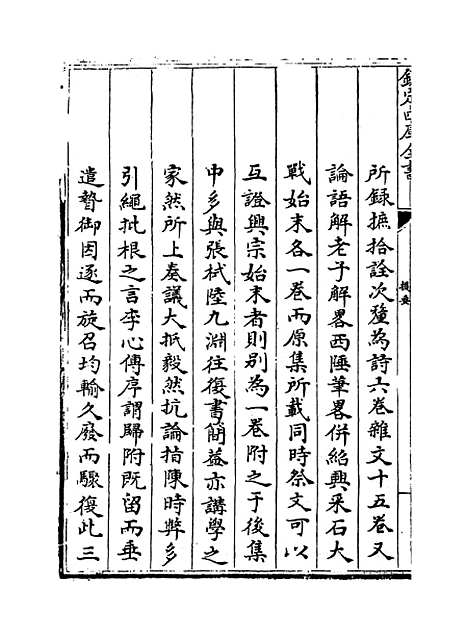 欽定四庫全書
提要
所錄摭拾詮次釐為詩六卷雜文十五卷又
論語解老子解畧西陲筆畧併紹興采石大
戰始末各一卷而原集所載同時祭文可以
互證興宗始末者則别為一卷附之于後集
中多與張栻陸九淵往復書簡葢亦講學之
家然所上奏議大抵毅然抗論指陳時弊多
引繩批根之言李心傳序謂歸附既留而垂
遣贄御因逐而旋召均輸久廢而驟復此三